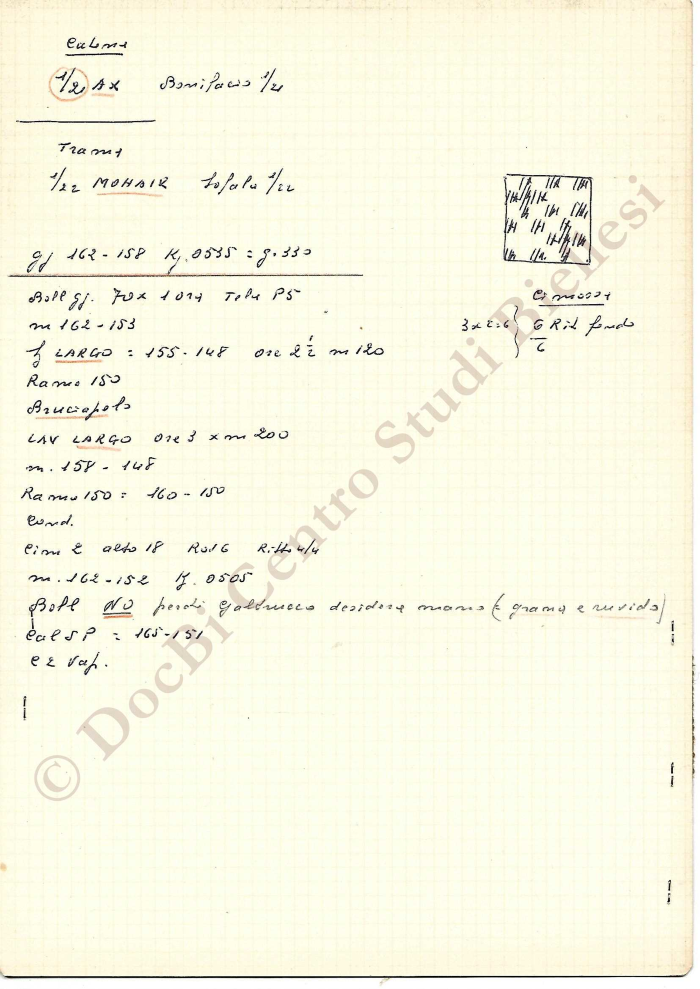 Catena
1/21 AX Bonifacio 1/21
Trama
1/22 MOHAIR Sofala 1/22
gj 162-158 Kg. 0535 = g. 330
Boll gj. 70 x 1 ora Tela P5
m 162-153
LARGO = 155-148 ore 2 1/2 m 120
Ramo 150
Bruciapelo
LAV LARGO ore 3 x m 200
m. 158-148
Ramo 150 = 160-150
Cond.
Cim 2 alto 18 Ro16 Ritto 4/4
m. 162-152 Kg. 0505
Boll NO Galtrucco desidera mano (= grana e ruvido)
Cal SP = 165-151
C 2 Vap.
Cimossa
3 x 2=6 } 6 Rit fondo
6
© DocBi Centro Studi Biellesi